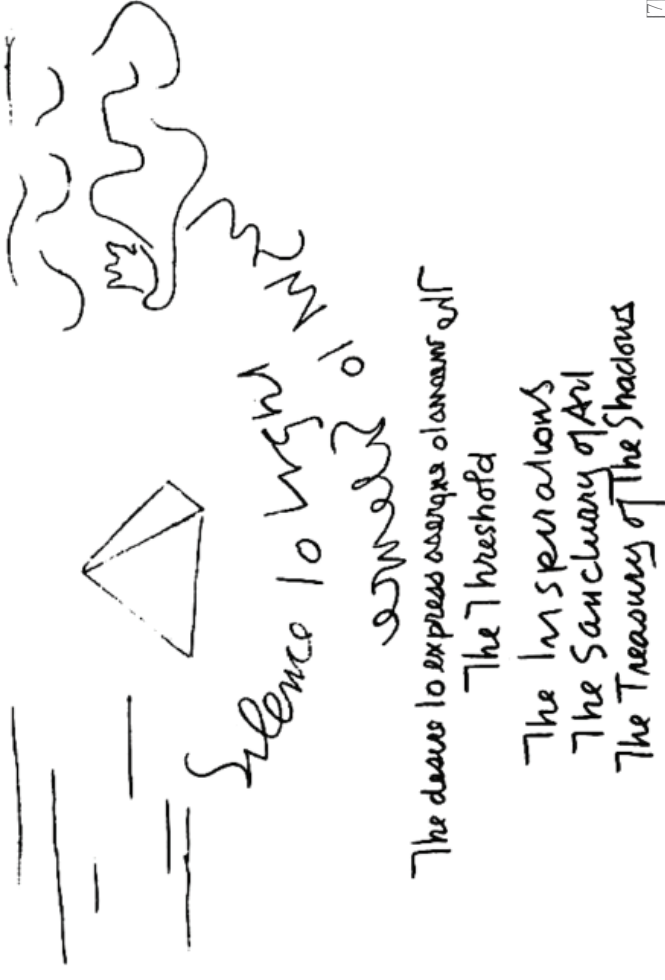 Silence to Light
Light to Silence
The desire to express
The Threshold
The Inspirations
The Sanctuary of Art
The Treasury of The Shadows
[7]